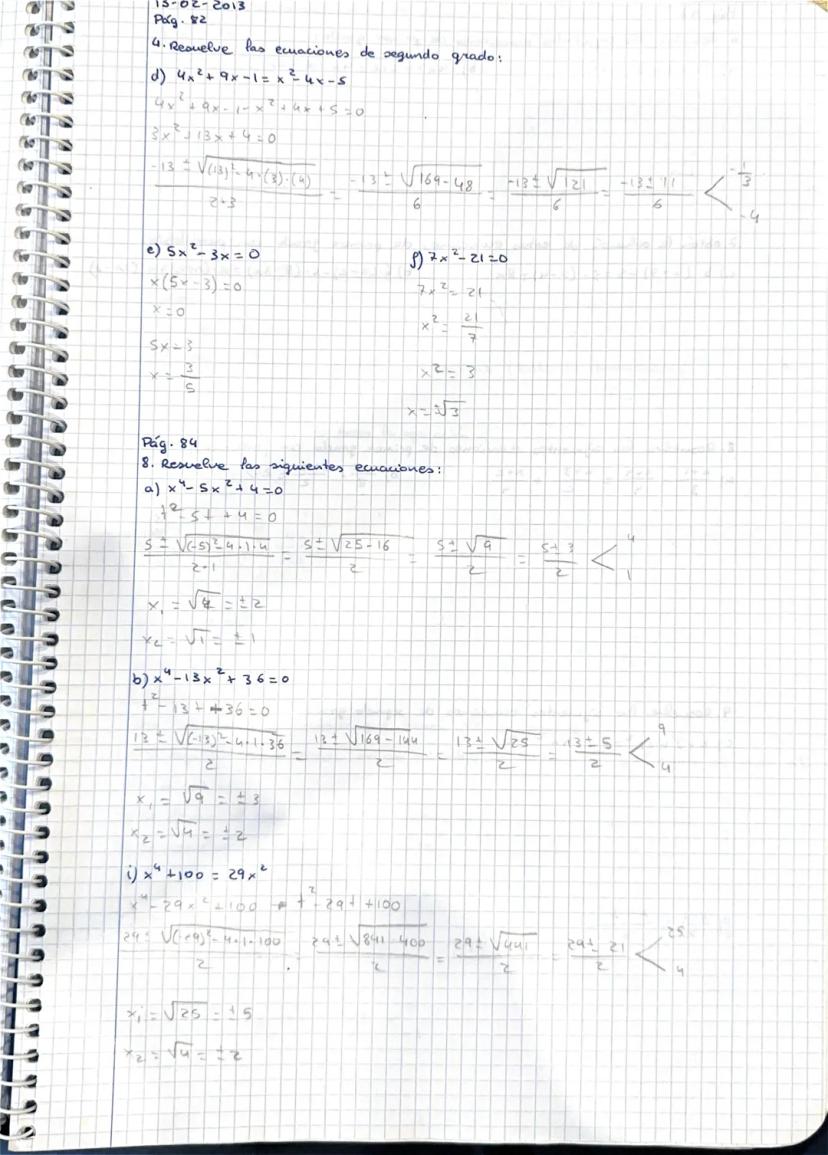 15-02-2013
Pág. 82
4. Resuelve las ecuaciones de segundo grado:
d) 4x² + 9x - 1 = x² - 4x - 5
4x² + 9x - 1 - x² + 4x + 5 = 0
3x² + 13x + 4 = 0
(-13 ± √((13)² - 4·(3)·(4)))/(2·3) = (-13 ± √(169 - 48))/6 = (-13 ± √121)/6 = (-13 ± 11)/6 < -1/3 -4
e) 5x² - 3x = 0
x(5x - 3) = 0
x = 0
5x = 3
x = 3/5
f) 7x² - 21 = 0
7x² = 21
x² = 21/7
x² = 3
x = ±√3
Pág. 84
8. Resuelve las siguientes ecuaciones:
a) x⁴ - 5x² + 4 = 0
t² - 5t + 4 = 0
(5 ± √((-5)² - 4·1·4))/(2·1) = (5 ± √(25 - 16))/2 = (5 ± √9)/2 = (5 ± 3)/2 < 4 1
x₁ = √4 = ±2
x₂ = √1 = ±1
b) x⁴ - 13x² + 36 = 0
t² - 13t + 36 = 0
(13 ± √((-13)² - 4·1·36))/2 = (13 ± √(169 - 144))/2 = (13 ± √25)/2 = (13 ± 5)/2 < 9 4
x₁ = √9 = ±3
x₂ = √4 = ±2
i) x⁴ + 100 = 29x²
x⁴ - 29x² + 100 t² - 29t + 100
(29 ± √((-29)² - 4·1·100))/2 = (29 ± √(841 - 400))/2 = (29 ± √441)/2 = (29 ± 21)/2 < 25 4
x₁ = √25 = ±5
x₂ = √4 = ±2